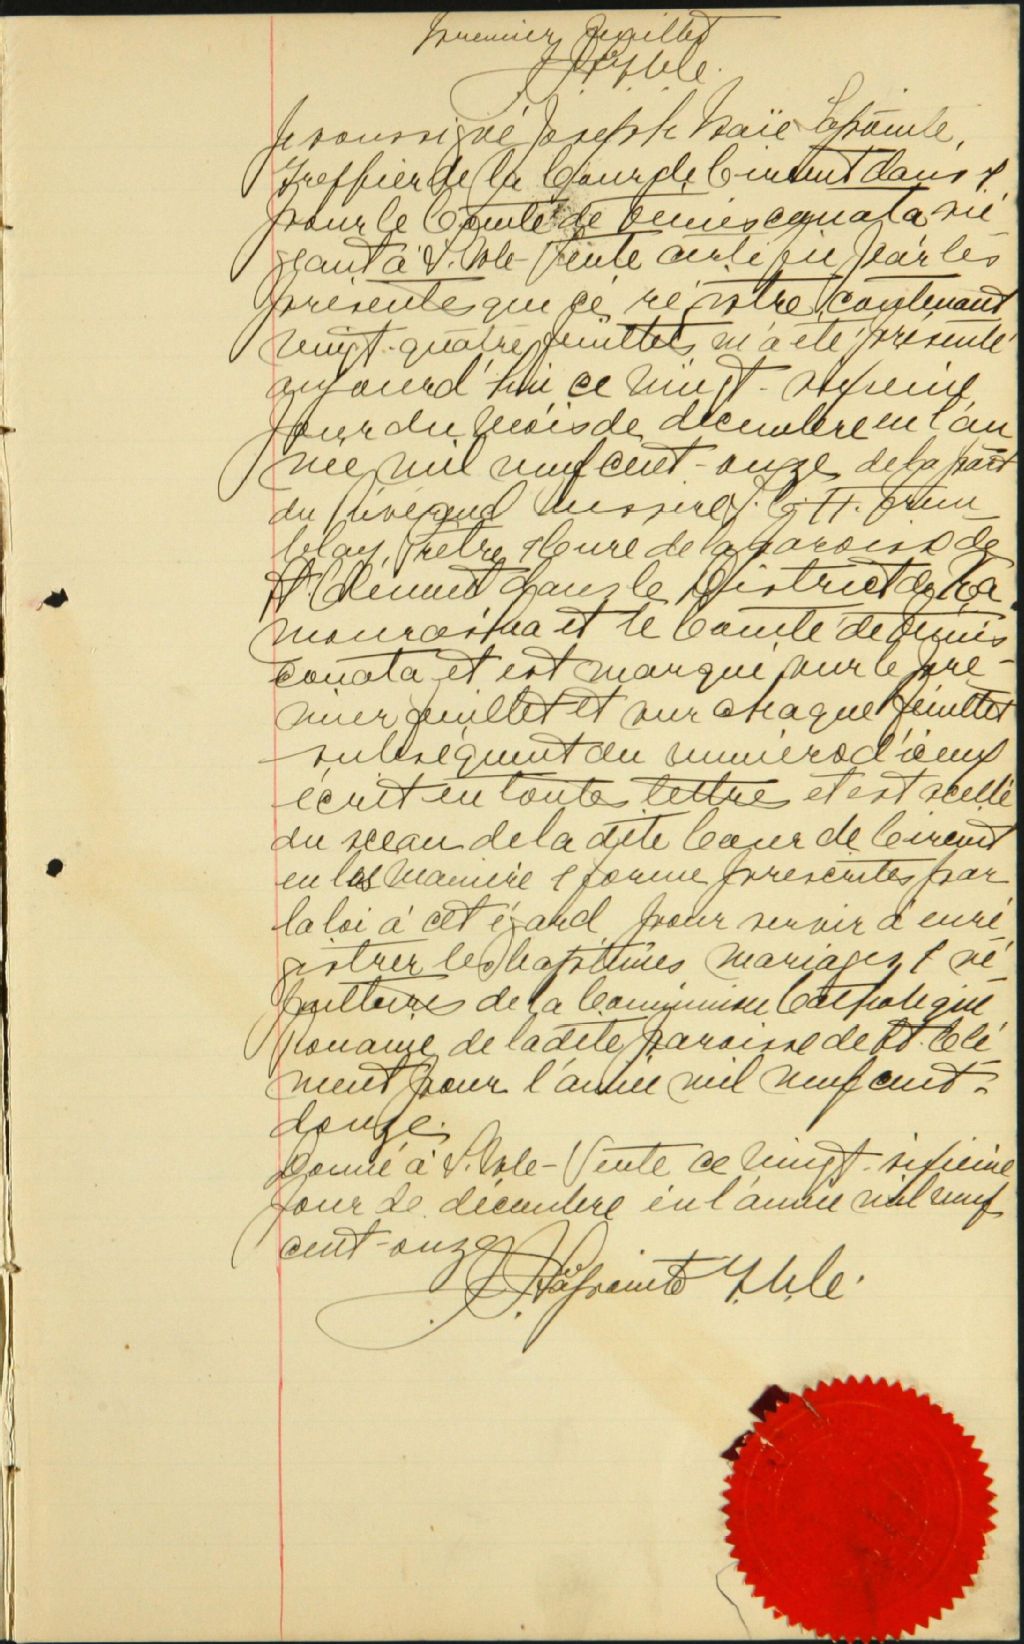 Premier feuillet
Je soussigné Joseph Isaïe Lapointe,
Greffier de la Cour de Circuit dans &
pour le Comté de Témiscouata sié
geant à l'Isle-Verte certifie par les
présentes que ce régistre contenant
vingt-quatre feuillets m'a été présenté
aujourd'hui ce vingt-sixième
jour du mois de décembre en l'an
née mil neuf cent-onze de la part
du Révérend Messire J.
blay, Prêtre & Curé de la paroisse de
St. Clément dans le District de Ka
mouraska et le Comté de Témis
couata et est marqué sur le pre-
mier feuillet et sur chaque feuillet
subséquent du numéro d'icelui
écrit en toutes lettres et est scellé
du sceau de la dite Cour de Circuit
en les manière & forme prescrites par
la loi à cet égard pour servir à enré
gistrer les baptêmes mariages & sé
pultures de la Communion Catholique
Romaine de la dite paroisse de St. Clé
ment pour l'année mil neuf cent-
douze.
Donné à l'Isle-Verte ce vingt-sixième
jour de décembre en l'année mil neuf
cent-onze
Lapointe